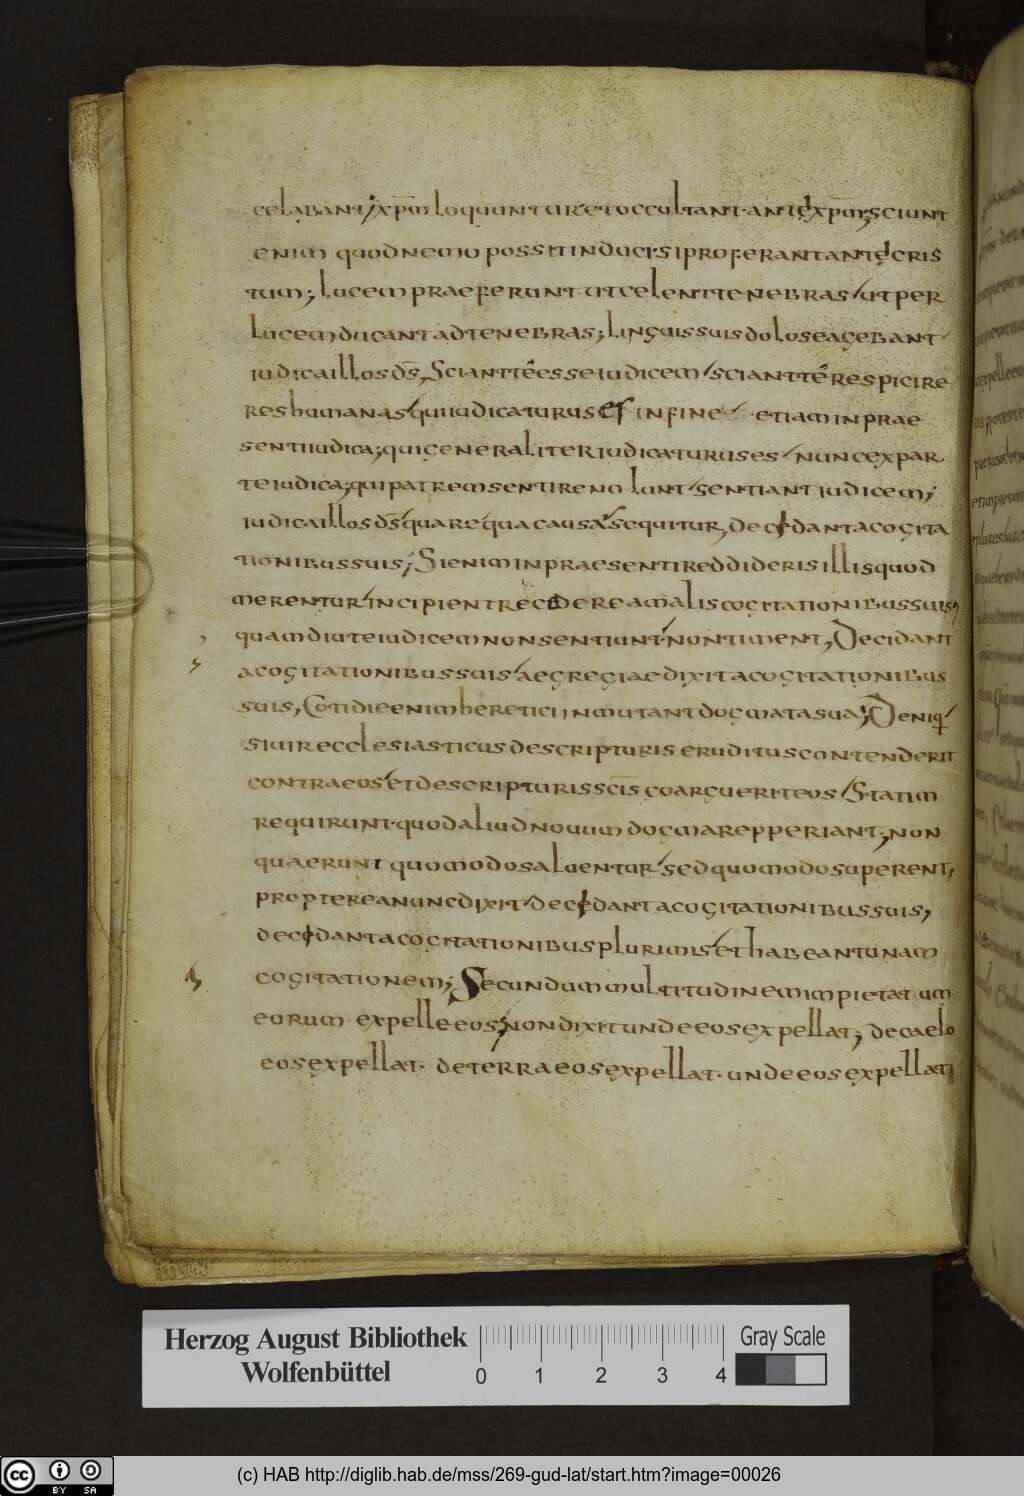 celabant; xp̄m loquuntur et occultant antexp̄m; sciunt
enim quod nemo possit induci si proferant antecris
tum; lucem praeferunt ut celent tenebras ut per
lucem ducant ad tenebras; linguis suis dolose agebant
iudica illos d̄s, Sciant te esse iudicem sciant te respicire
res humanas qui iudicaturus es in fine etiam in prae
senti iudica; qui generaliter iudicaturus es nunc ex par
te iudica; qui patrem sentire nolunt sentiant iudicem;
iudica illos d̄s quare qua causa sequitur, decidant a cogita
tionibus suis; Si enim in praesenti reddideris illis quod
merentur incipient recedere a malis cogitationibus suis,
quamdiu te iudicem non sentiunt non timent, Decidant
a cogitationibus suis aegregiae dixit a cogitationibus
suis, Cotidie enim heretici inmutant dogmata sua; Deniq;
si uir ecclesiasticus de scripturis eruditus contenderit
contra eos et de scripturis sc̄is coarguerit eos Statim
requirunt quod aliud nouum dogma repperiant; non
quaerunt quomodo saluentur sed quomodo superent,
propterea nunc dixit decidant a cogitationibus suis,
decidant a cogitationibus plurimis et habeant unam
cogitationem; Secundum multitudinem impietatum
eorum expelle eos; non dixit unde eos expellat; de caelo
eos expellat. de terra eos expellat. unde eos expellat;
Herzog August Bibliothek
Wolfenbüttel
0 1 2 3 4
Gray Scale
cc BY SA
(c) HAB http://diglib.hab.de/mss/269-gud-lat/start.htm?image=00026